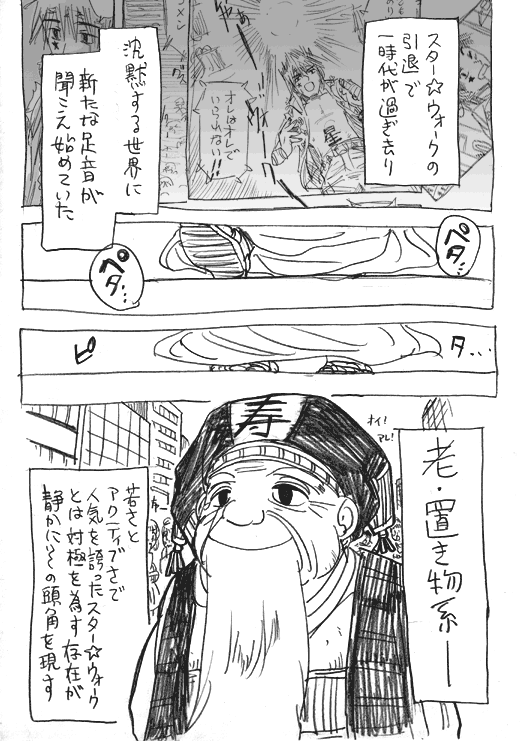 スター☆ウォークの
引退で
一時代が過ぎ去り
オレはオレで
いられない!!
星
沈黙する世界に
新たな足音が
聞こえ始めていた
ペタ…
ペタ…
タ…
ピ
オイ!
アレ!
寿
老・置き物系―
若さと
アクティブさで
人気を誇ったスター☆ウォーク
とは対極を為す存在が
静かにその頭角を現す